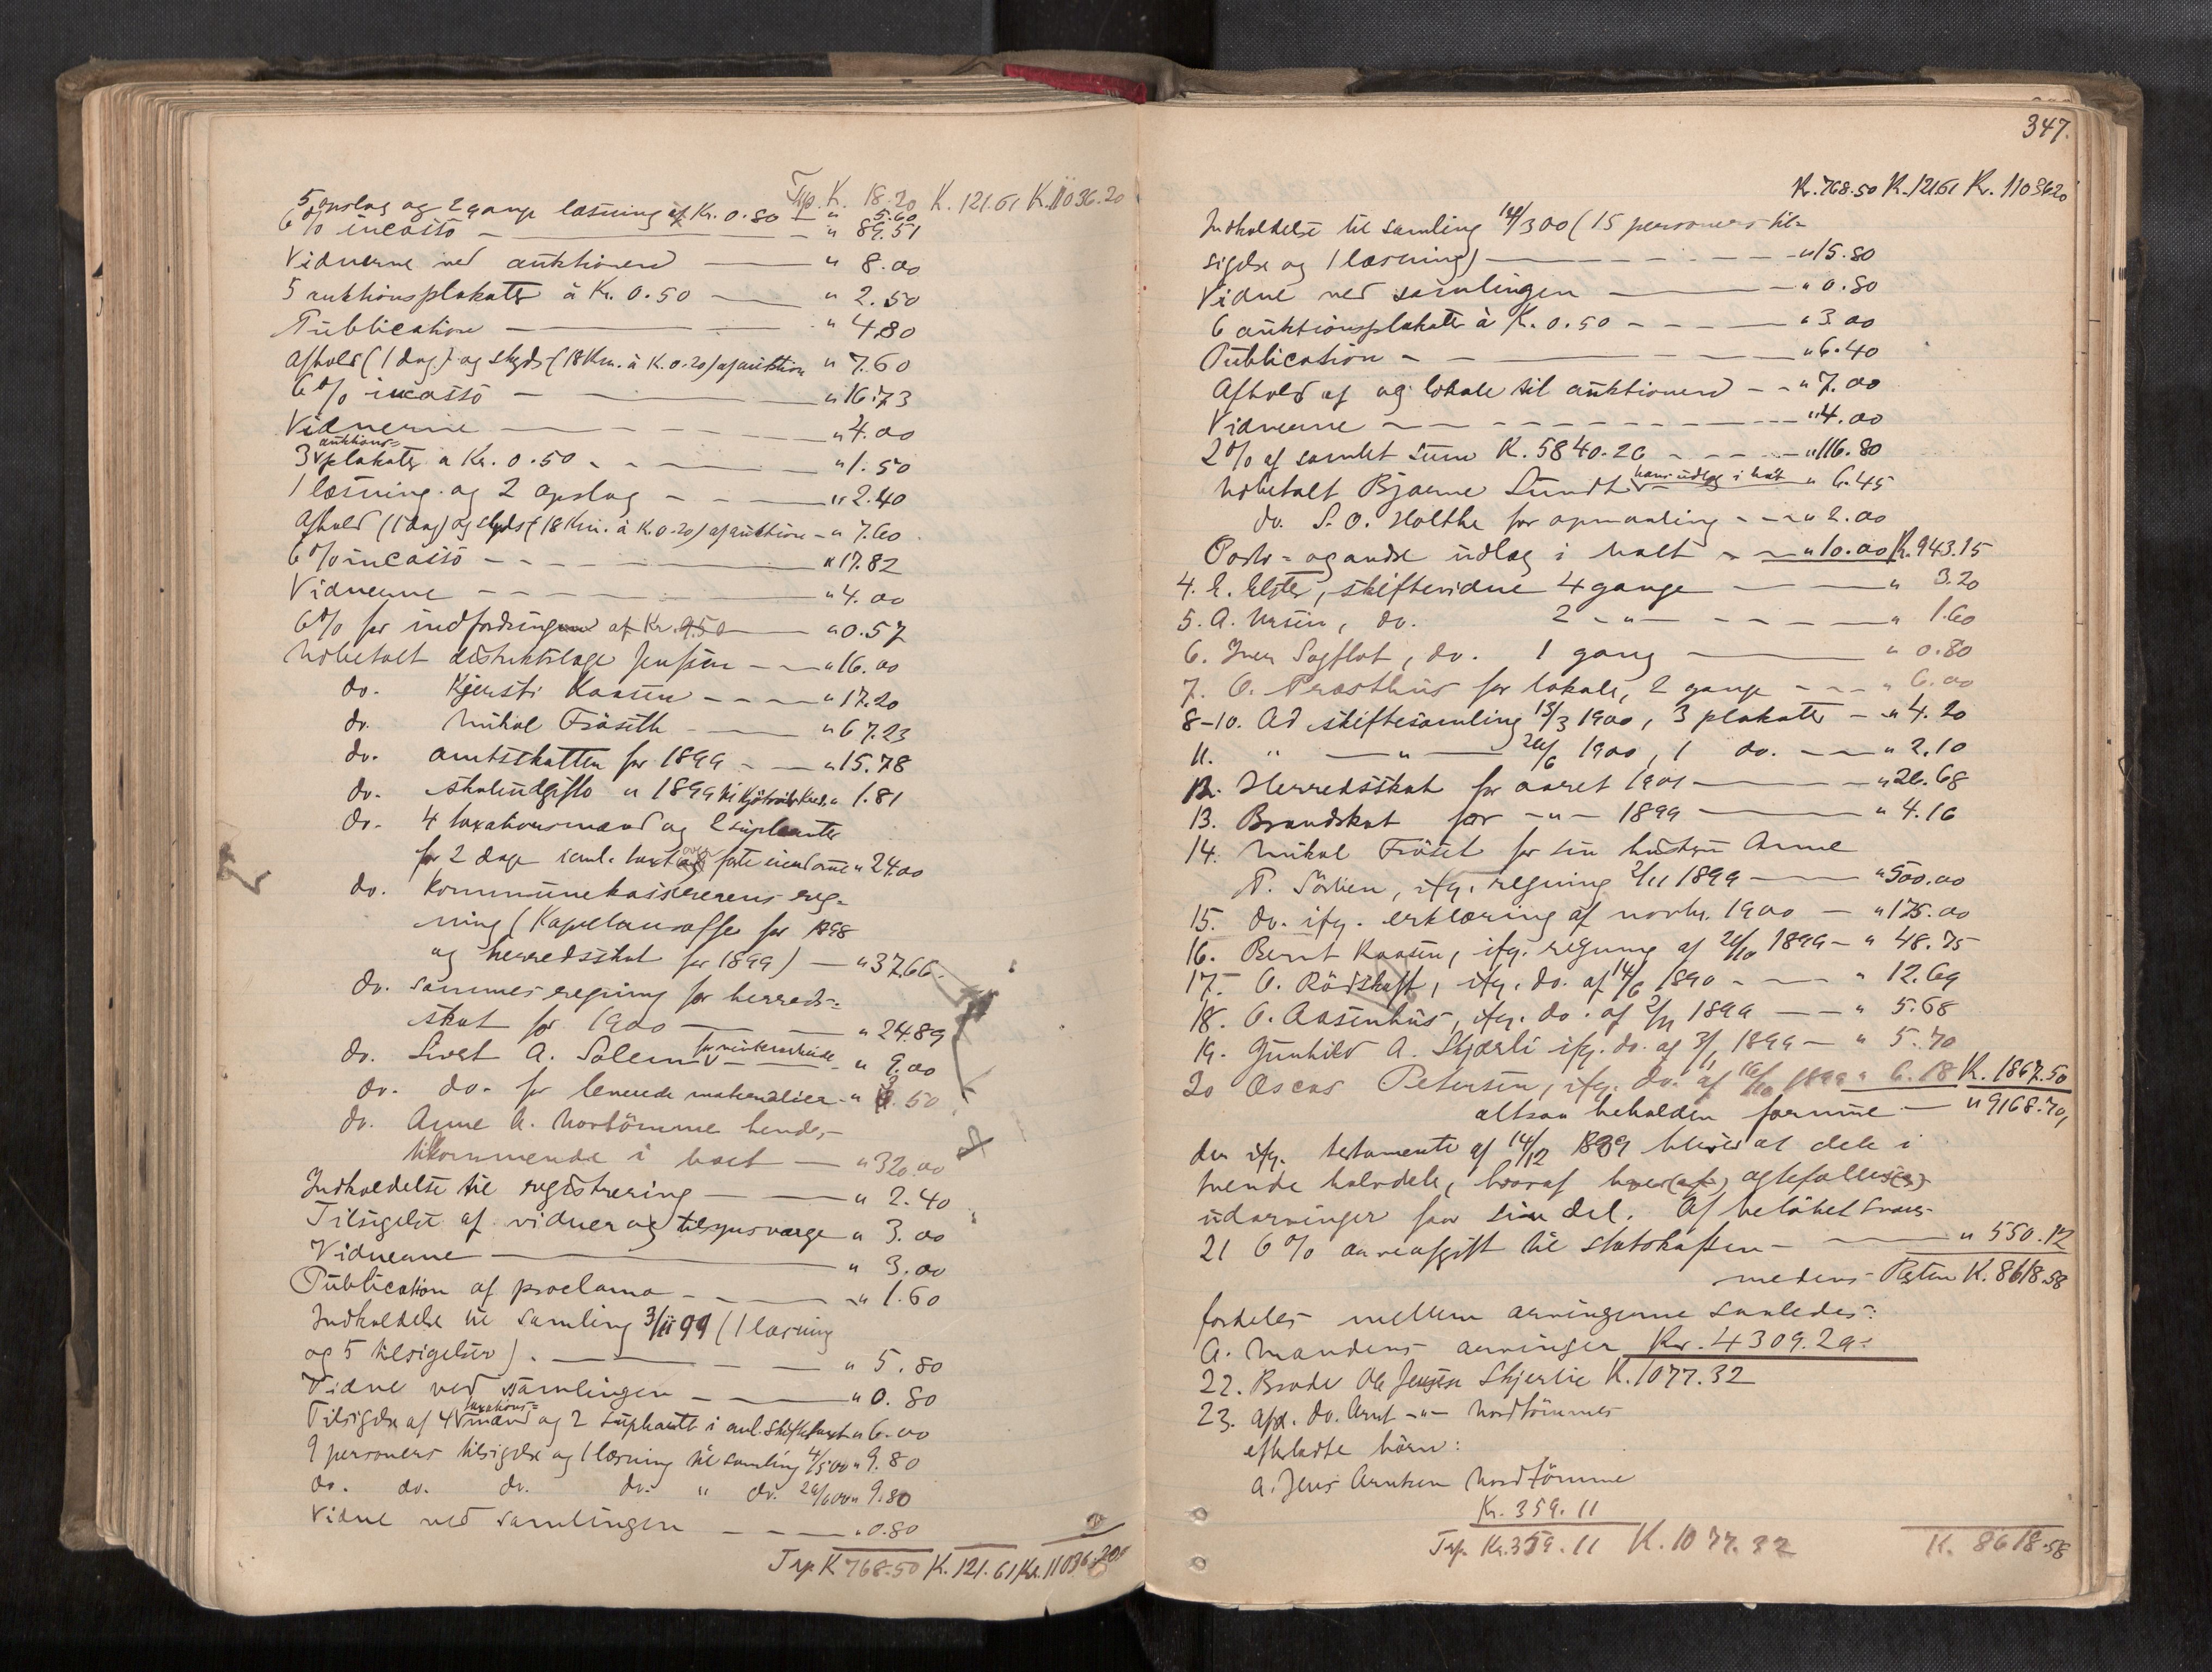 Trp. K. 18.20 K. 121.61 K. 11036.20
5 opslag og 2 gange læsning af Kr. 0.80 - " 5.60
6% incasso - " 89.51
Vidnerne ved auktionen - " 8.00
5 auktionsplakater à Kr. 0.50 - " 2.50
Publication - " 4.80
Afhold (1 dag) og skyds (18 Km. à K. 0.20) af auktion " 7.60
6% incasso - " 16.73
Vidnerne - " 4.00
3 auktions= plakater a Kr. 0.50 - " 1.50
1 læsning og 2 opslag - " 2.40
Afhold (1 dag) og skyds (18 Km. à K. 0.20) af auktion - " 7.60
6% incasso - " 17.82
Vidnerne - " 4.00
6% for indfordringen af Kr. 9.50 - " 0.57
Udbetalt distriktslæge Jenssen - " 16.00
do. Kjersti Kaasen - " 17.20
do. Mikal Fröseth - " 67.23
do. amtsskatten for 1899 - " 15.78
do. skoleudgifter " 1899 " 1.81
do. 4 taxationsmænd og 2 suplanter
for 2 dage saml. taxt over faste eiendomme " 24.00
do. Kommunekassererens reg=
ning (Kapelansoffer for 1898
og herredsskat for 1899) - " 37.66
do. sammes regning for herreds=
skat for 1900 - " 24.89
do. Sivert A. Solem - " 9.00
do. do. for leverede materialier - " 50
do. Anne A. Nordtömme hendes
tilkommende i boet - " 320.00
Indkaldelse til registrering - " 2.40
Tilsigelse af vidner og tilsynsværge " 3.00
Vidnerne - " 3.00
Publication af proclama - " 1.60
Indkaldelse til samling 3/11 99 (1 læsning
og 5 tilsigelser) - " 5.80
Vidne ved samlingen - " 0.80
Tilsigelse af 4 taxations= mænd og 2 suplanter i anl. skiftetaxt " 6.00
9 personers tilsigelse og 1 læsning til samling 4/5 00 " 9.80
do. do. do. do. " do. 29/6 00 " 9.80
Vidne ved samlingen - " 0.80
Trp. K 768.50 K. 121.61 Kr. 11036.20
347.
Kr. 768.50 K. 121.61 Kr. 11036.20
Indkaldelse til samling 300 (15 personers til=
sigelse og 1 læsning) - " 15.80
Vidne ved samlingen - " 0.80
6 auktionsplakater à K. 0.50 - " 3.00
Publication - " 6.40
Afhold af og lokale til auktionen - " 7.00
Vidnerne - " 4.00
2% af samlet sum K. 5840.20 - " 116.80
Udbetalt Bjarne Sundt hans udlæg i boet " 6.45
do. S. O. Holthe for opmaaling - " 2.00
Porto= og andre udlæg i boet - " 10.00 K. 943.15
4. E. Elster, skiftevidne 4 gange - " 3.20
5. A. Ursin, do. 2 - " - " 1.60
6. Iver Sagflot, do. 1 gang - " 0.80
7. O. Præsthus for lokale, 2 gange - " 6.00
8-10. Ad skiftesamling 13/3 1900, 3 plakater - " 4.20
11. " - " - 29/6 1900, 1 do. - " 2.10
12. Herredsskat for aaret 1901 - " 26.68
13. Brandskat for - " - 1899 - " 4.16
14. Mikal Fröset for sin hustru Anne
P. Sörlien, ifg. regning 2/11 1899 - " 500.00
15. do. ifg. erklæring af novbr. 1900 - " 175.00
16. Bernt Kaasen, ifg. regning af 26/10 1899 - " 48.75
17. O. Rödskaft, ifg. do. af 14/6 1890 - " 12.69
18. O. Aasenhus, ifg. do. af 2/11 1899 - " 5.68
19. Gunhild A. Skjerli ifg. do. af 3/11 1899 - " 5.70
20 Oscar Petersen, ifg. do. af 16/10 1899 " 6.18 K. 1867.50
altsaa beholden formue - " 9168.70,
der ifg. testamente af 14/12 1889 bliver at dele i
tvende halvdele, hvoraf hver(af) ægtefælles(s)
udarvinger faar sin del. Af beløbet svares
21 6% arveafgift til statskassen - " 550.12
medens Resten K. 8618.58
fordeles mellem arvingerne saaledes:
A. Mandens arvinger Kr. 4309.29:
22. Broder Ole Jensen Skjerlie K. 1077.32
23. Afd. do. Arnt - " - Nordtömmes
efterladte börn:
a. Jens Arntsen Nordtömme
Kr. 359.11
Trp. Kr. 359.11 K. 1077.32 K. 8618.58